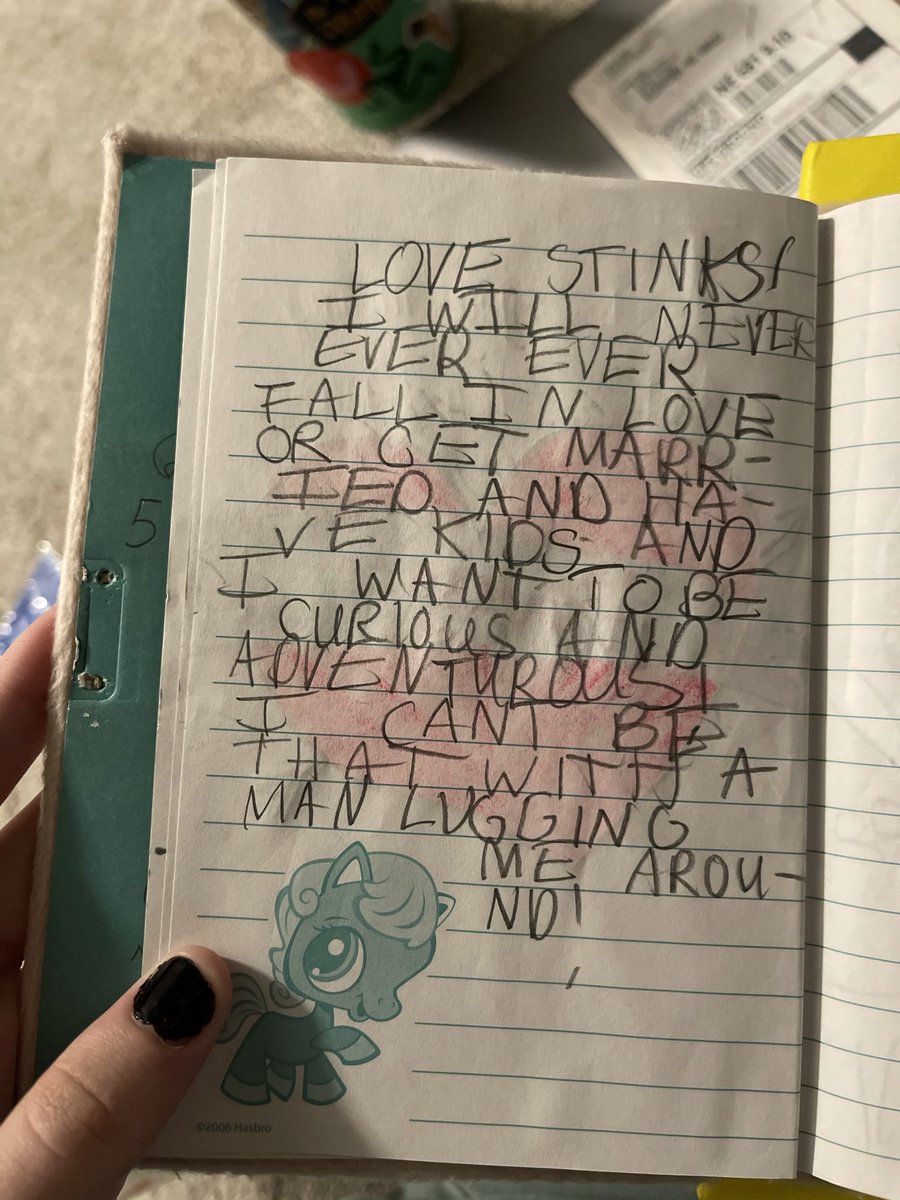 LOVE STINKS!
I WILL NEVER
EVER EVER
FALL IN LOVE
OR GET MARR-
IED AND HA-
VE KIDS AND
I WANT TO BE
CURIOUS AND
ADVENTUROUS!
I CANT BE
THAT WITH A
MAN LUGGING
ME AROU-
ND!
5
©2006 Hasbro